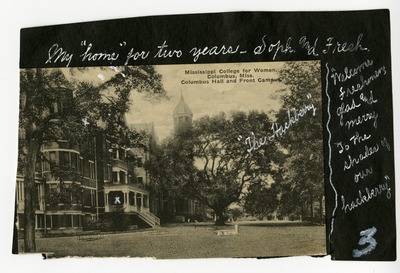 My "home" for two years - Soph and Fresh.
Mississippi College for Women,
Columbus, Miss.
Columbus Hall and Front Campus
"The Hackberry
Welcome
Freshmen,
glad and
merry
To the
shades of
our
hackberry"
x
x
3